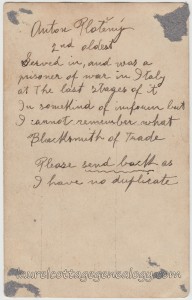 Anton Plotěný
2nd oldest
Served in, and was a
prisoner of war in Italy
at The last stages of it
In somekind of infowm but
I cannot remember what
Blacksmith of Trade
Please send back as
I have no duplicate
www.ruralcottagegenealogy.com